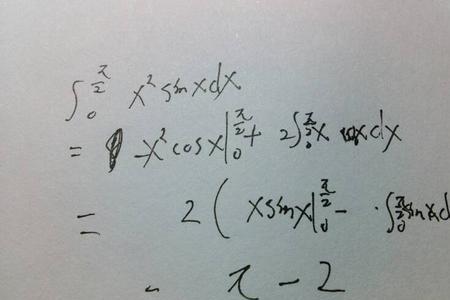 ∫₀^(π/2) x² sin x dx
= -x² cos x |₀^(π/2) + 2∫₀^(π/2) x cos x dx
= 2 ( x sin x |₀^(π/2) - ∫₀^(π/2) sin x d
- π - 2